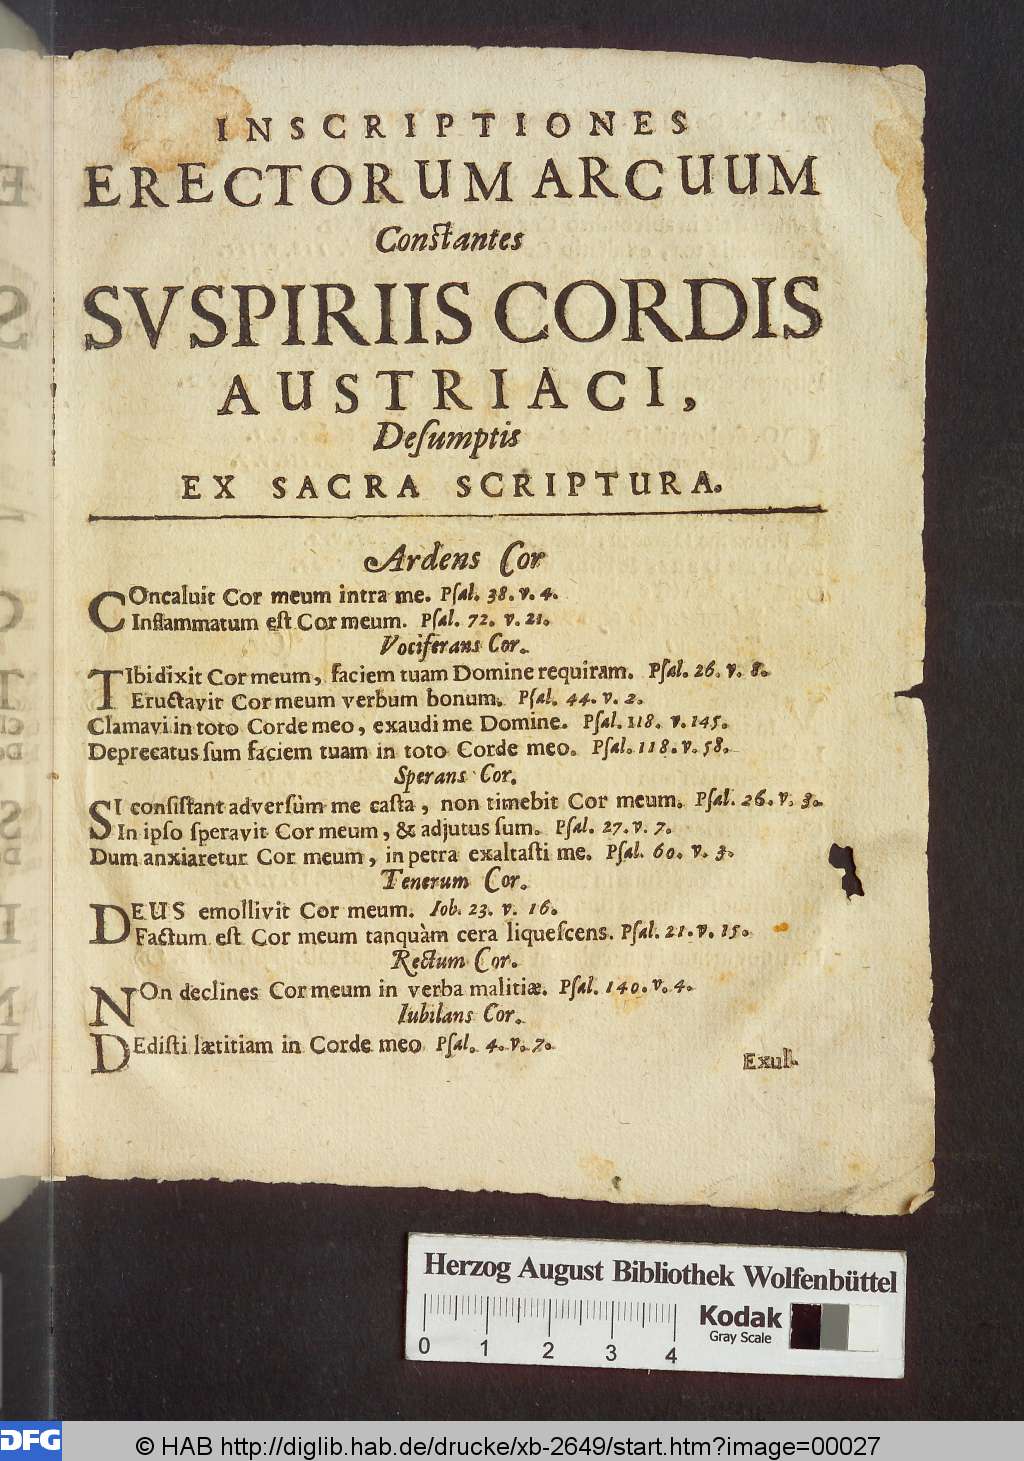 INSCRIPTIONES
ERECTORUM ARCUUM
Constantes
SVSPIRIIS CORDIS
AUSTRIACI,
Deſumptis
EX SACRA SCRIPTURA.
Ardens Cor
COncaluit Cor meum intra me. Pſal. 38. v. 4.
Inflammatum eſt Cor meum. Pſal. 72. v. 21.
Vociferans Cor.
TIbi dixit Cor meum, faciem tuam Domine requiram. Pſal. 26. v. 8.
Eructavit Cor meum verbum bonum. Pſal. 44. v. 2.
Clamavi in toto Corde meo, exaudi me Domine. Pſal. 118. v. 145.
Deprecatus ſum faciem tuam in toto Corde meo. Pſal. 118. v. 58.
Sperans Cor.
SI conſiſtant adverſùm me caſta, non timebit Cor meum. Pſal. 26. v. 3.
In ipſo ſperavit Cor meum, & adjutus ſum. Pſal. 27. v. 7.
Dum anxiaretur Cor meum, in petra exaltaſti me. Pſal. 60. v. 3.
Tenerum Cor.
DEUS emollivit Cor meum. Iob. 23. v. 16.
Factum eſt Cor meum tanquàm cera liqueſcens. Pſal. 21. v. 15.
Rectum Cor.
NOn declines Cor meum in verba malitiæ. Pſal. 140. v. 4.
Iubilans Cor.
DEdiſti lætitiam in Corde meo Pſal. 4. v. 7.
Exul-
Herzog August Bibliothek Wolfenbüttel
Kodak
Gray Scale
0 1 2 3 4
DFG
© HAB http://diglib.hab.de/drucke/xb-2649/start.htm?image=00027